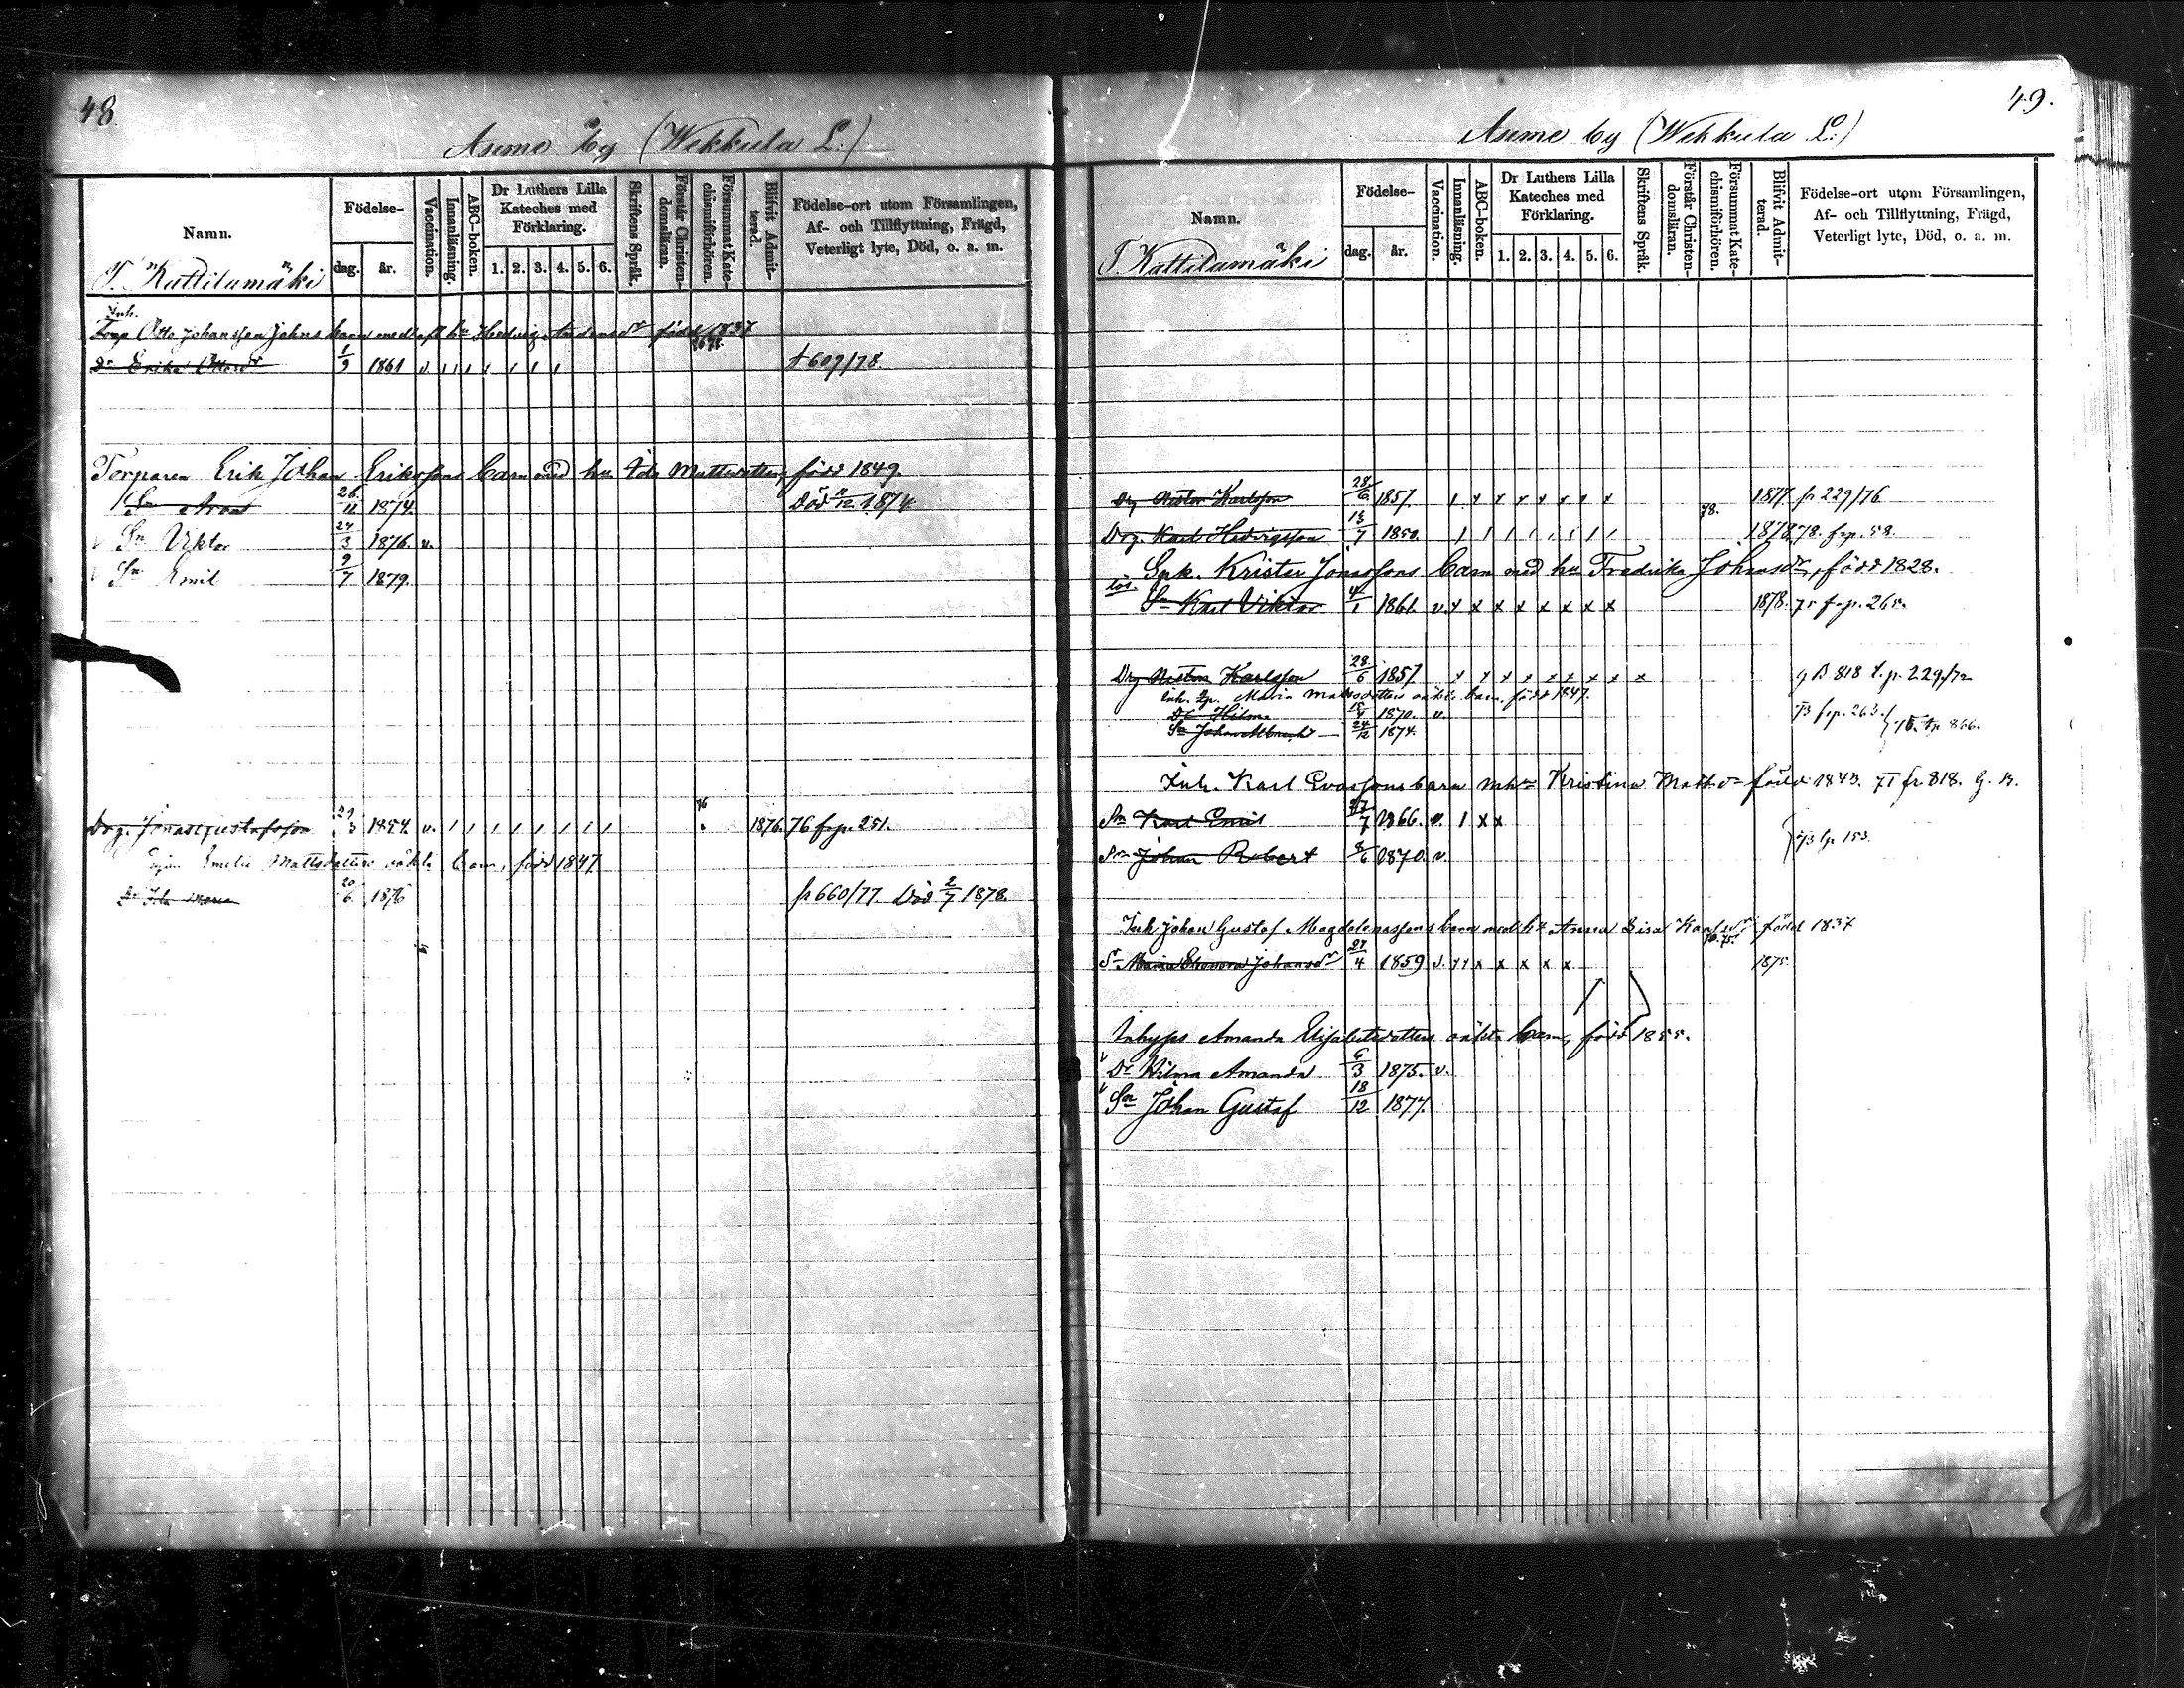 48.
Asemo by (Wekkula L.)
Namn.
Födelse-
dag.
år.
Vaccination.
Innanläsning.
ABC-boken.
Dr Luthers Lilla Kateches med Förklaring.
1. 2. 3. 4. 5. 6.
Skriftens Språk.
Förstår Christen-domsläran.
Försummat Kate-chismiförhören.
Blifvit Admit-terad.
Födelse-ort utom Församlingen,
Af- och Tillflyttning, Frägd,
Veterligt lyte, Död, o. a. m.
T. Kattilamäki
Inh.
Otto Johansson barn med hu Hedvig född 1837
Dr Erika Ottosdr 1/9 1861 v. t 609/78.
Torparen Erik Johan Erikssons barn med hu Ida Mattsdotter, född 1849.
Sn Aron 26/11 1874. Död 12. 1874
Sn Viktor 24/3 1876. v.
Sn Emil 9/7 1879.
Drg. Jonas Gustafsson 29/3 1854. v. 76 1876. 76 frp. 251.
Emelie Mattsdotters oäkta barn, född 1847
Dr Ida Maria 20/6 1876 fr 660/77. Död 2/7 1878.
49.
Asemo by (Wekkula L.)
Namn.
Födelse-
dag.
år.
Vaccination.
Innanläsning.
ABC-boken.
Dr Luthers Lilla Kateches med Förklaring.
1. 2. 3. 4. 5. 6.
Skriftens Språk.
Förstår Christen-domsläran.
Försummat Kate-chismiförhören.
Blifvit Admit-terad.
Födelse-ort utom Församlingen,
Af- och Tillflyttning, Frägd,
Veterligt lyte, Död, o. a. m.
T. Kattilamäki
Drg Karlsson 28/6 1857. x x x x x x x 1877. fr 229/76
Drg. Karl Hedvigsson 13/7 1850. 78. 1878. 78. frp. 58.
Spk. Krister Jonassons barn med hu Fredrika Johansdr, född 1828.
Sn Karl Viktor 4/1 1861. v. x x x x x x x x 1878. 75 frp. 265.
Drg Karlsson 28/6 1857 x x x x x x x x x g B 818 t. p. 229/72
Inh. Maria Mattsdotters oäkta barn, född 1847.
Dr Hilma 1870. v. 73 frp. 263.
Sn Johan Albrecht 24/12 1874.
Inh. Karl Evassons barn m hu Kristina Mattsdr född 1843. 71 fr 818. G. B.
Sn Karl Emil 27/7 1866. v. x x
Sn Johan Robert 8/6 1870 v. 73 tp 153.
Inh Johan Gustaf Magdalenassons barn med hu Anna Lisa Karlsdr född 1837
Maria Eleonora Johansdr 27/4 1859 v. x x x x x x x 1875.
Inhyses Amanda Elisabetsdotters oäkta barn, född 1855.
Dr Hilma Amanda 6/3 1875. v.
Sn Johan Gustaf 18/12 1877.